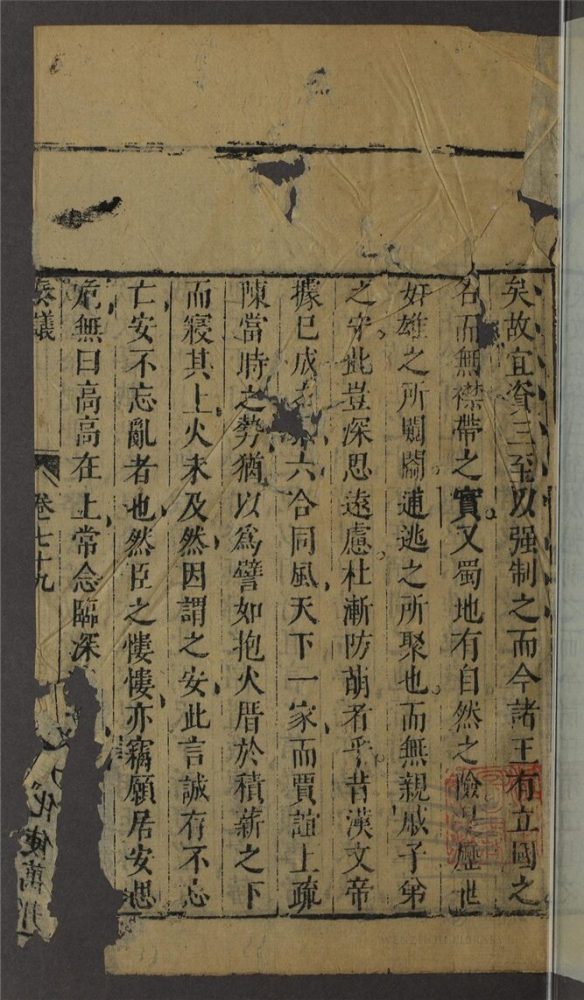 矣故宜資三至以强制之而今諸王有立國之
名而無襟帶之實又蜀地有自然之險歷世
奸雄之所闚𨵦逋逃之所聚也而無親戚子弟
之守此豈深思遠慮杜漸防萌者乎昔漢文帝
據已成六合同風天下一家而賈誼上疏
陳當時之勢猶以爲譬如抱火厝於積薪之下
而寢其上火未及然因謂之安此言誠存不忘
亡安不忘亂者也然臣之慺慺亦竊願居安思
危無曰高高在上常念臨深
奏議 卷七十九
化使萬